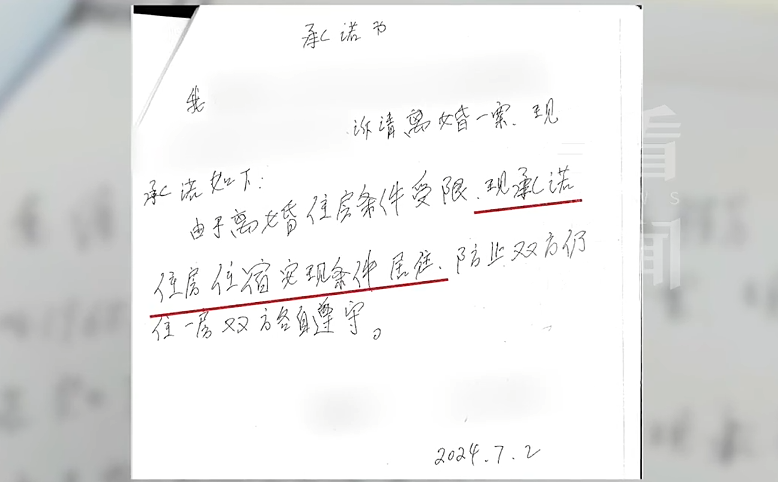 承诺书
我
诉请离婚一案、现
承诺如下：
由于离婚住房条件受限、现承诺
住房住宿实现条件居住、防止双方仍
住一房双方各自遵守。
2024.7.2
看
NEWS
闻